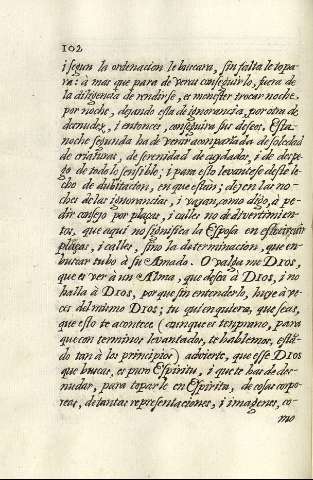 102
i segun la ordenacion le buscara, si su falta le topa-
ra: à mas que para de veras conseguirlo, fuera de
la diligencia de rendirse, es menester trocar noche
por noche, dejando esta de ignorancia, por otra de
desnudez, i entonces, conseguira sus deseos. Esta
noche segunda ha de venir acompañada de soledad
de criaturas, de serenidad de cuydados, i de despe-
go de todo lo sensible; i para esto levantese deste le-
cho de dubitacion, en que estàn; dejen las no-
ches de las ignorancias, i vayan, como digo, à pe-
dir consejo por plaças, i calles no de divertimien-
tos, que aqui no significa la Esposa en estos
plaças, i calles, sino la determinacion, que en
buscar tubo à su Amado. O valga me DIOS,
que es ver à un Alma, que desea à DIOS, i no
halla à DIOS, porque sin entenderlo, huye à ve-
ces del mismo DIOS; tu quienquiera, que seas,
que esto te acontece (aunque es temprano, para
que con terminos levantados, te hablemos, está-
do tan à los principios) advierte, que esse DIOS
que buscas, es puro Espiritu, i que te has de des-
nudar, para toparle en Espiritu, de cosas corpo-
reas, de tantas representaciones, i imagenes, co-
mo